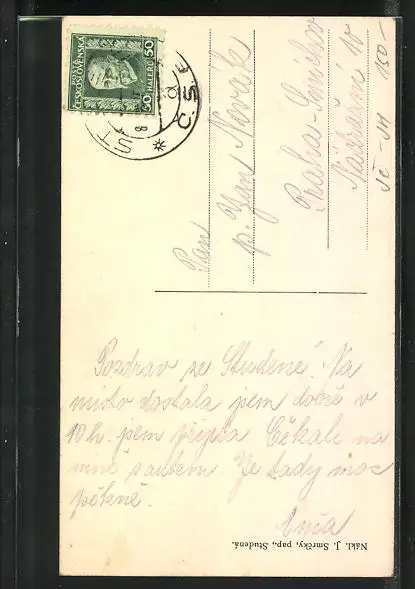 ČESKOSLOVENSKÁ
50 HALÉŘŮ 50
Pan
p. Jan Novák
Praha-Smíchov
Nádražní 10
150-
Pozdrav ze Studené! Na
místo dostala jsem dobře v
10 h. jsem přijela Čekali na
mně s autem. Je tady moc
pěkně.
Nákl. J. Smrčky, pap., Studená.